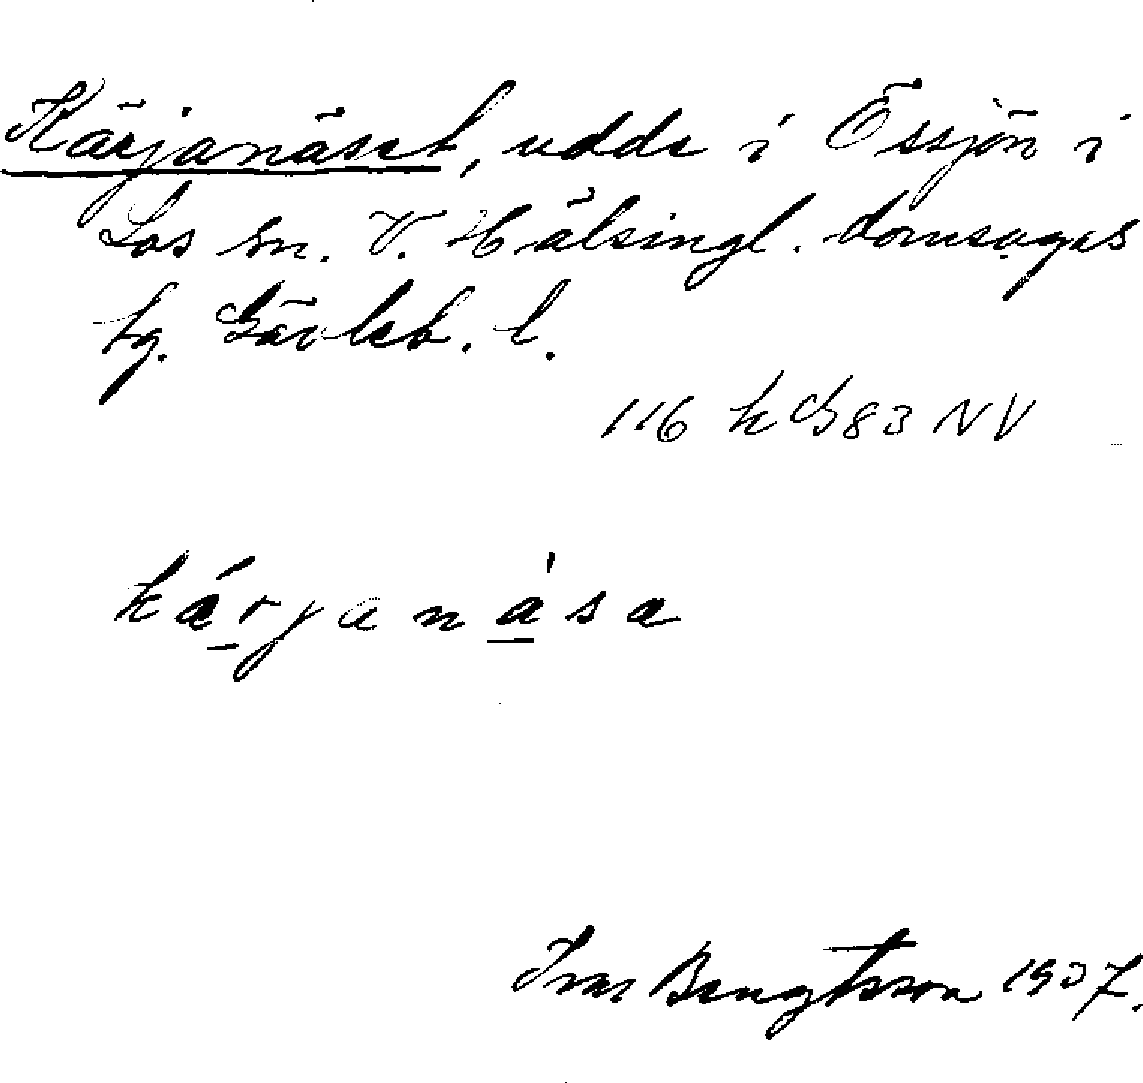 Kärjanäset, udde i Össjön i
Los sn. V. Hälsingl. domsagas
tg. Gävleb. l.
116 k G83 NV
kárjanása
Bengtsson 1937.